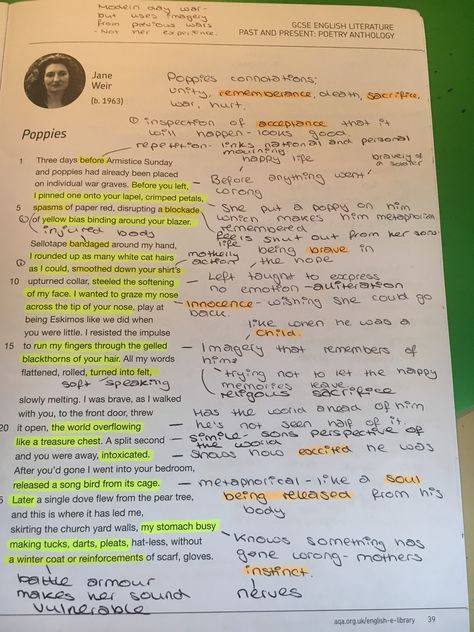 Modern day war-
but uses imagery
from previous wars
- Not her experience.
GCSE ENGLISH LITERATURE
PAST AND PRESENT: POETRY ANTHOLOGY
Jane
Weir
(b. 1963)
Poppies connotations;
unity, rememberance, death, sacrifice,
war, hurt.
① inspection of acceptance that it
will happen - looks good
repetetion - links national and personal
mourning
Poppies
happy life
bravery of
a soldier
1 Three days before Armistice Sunday
and poppies had already been placed
on individual war graves. Before you left,
I pinned one onto your lapel, crimped petals,
5 spasms of paper red, disrupting a blockade
of yellow bias binding around your blazer.
Before anything went
wrong
She put a poppy on him
which makes him metaphorical
remembered
feels shut out from her sons
life
injured body
Sellotape bandaged around my hand,
I rounded up as many white cat hairs
as I could, smoothed down your shirt's
10 upturned collar, steeled the softening
of my face. I wanted to graze my nose
across the tip of your nose, play at
being Eskimos like we did when
you were little. I resisted the impulse
15 to run my fingers through the gelled
blackthorns of your hair. All my words
flattened, rolled, turned into felt,
motherly
action
being brave in
the hope
Left taught to express
no emotion - aliteration
innocence - wishing she could go
back.
like when he was a
child.
Imagery that remembers of
him
trying not to let the happy
memories leave
religous sacrifice
soft speaking
slowly melting. I was brave, as I walked
with you, to the front door, threw
20 it open, the world overflowing
like a treasure chest. A split second
and you were away, intoxicated.
After you'd gone I went into your bedroom,
released a song bird from its cage.
Later a single dove flew from the pear tree,
and this is where it has led me,
skirting the church yard walls, my stomach busy
making tucks, darts, pleats, hat-less, without
a winter coat or reinforcements of scarf, gloves.
Has the world ahead of him
- he's not seen half of it.
- simile - sons perspective of
the world
- Shows how excited he was
- metaphorical - like a soul
being released from his
body
Knows something has
gone wrong - mothers
instinct.
nerves
battle armour
makes her sound
vulnerable
aqa.org.uk/english-e-library 39